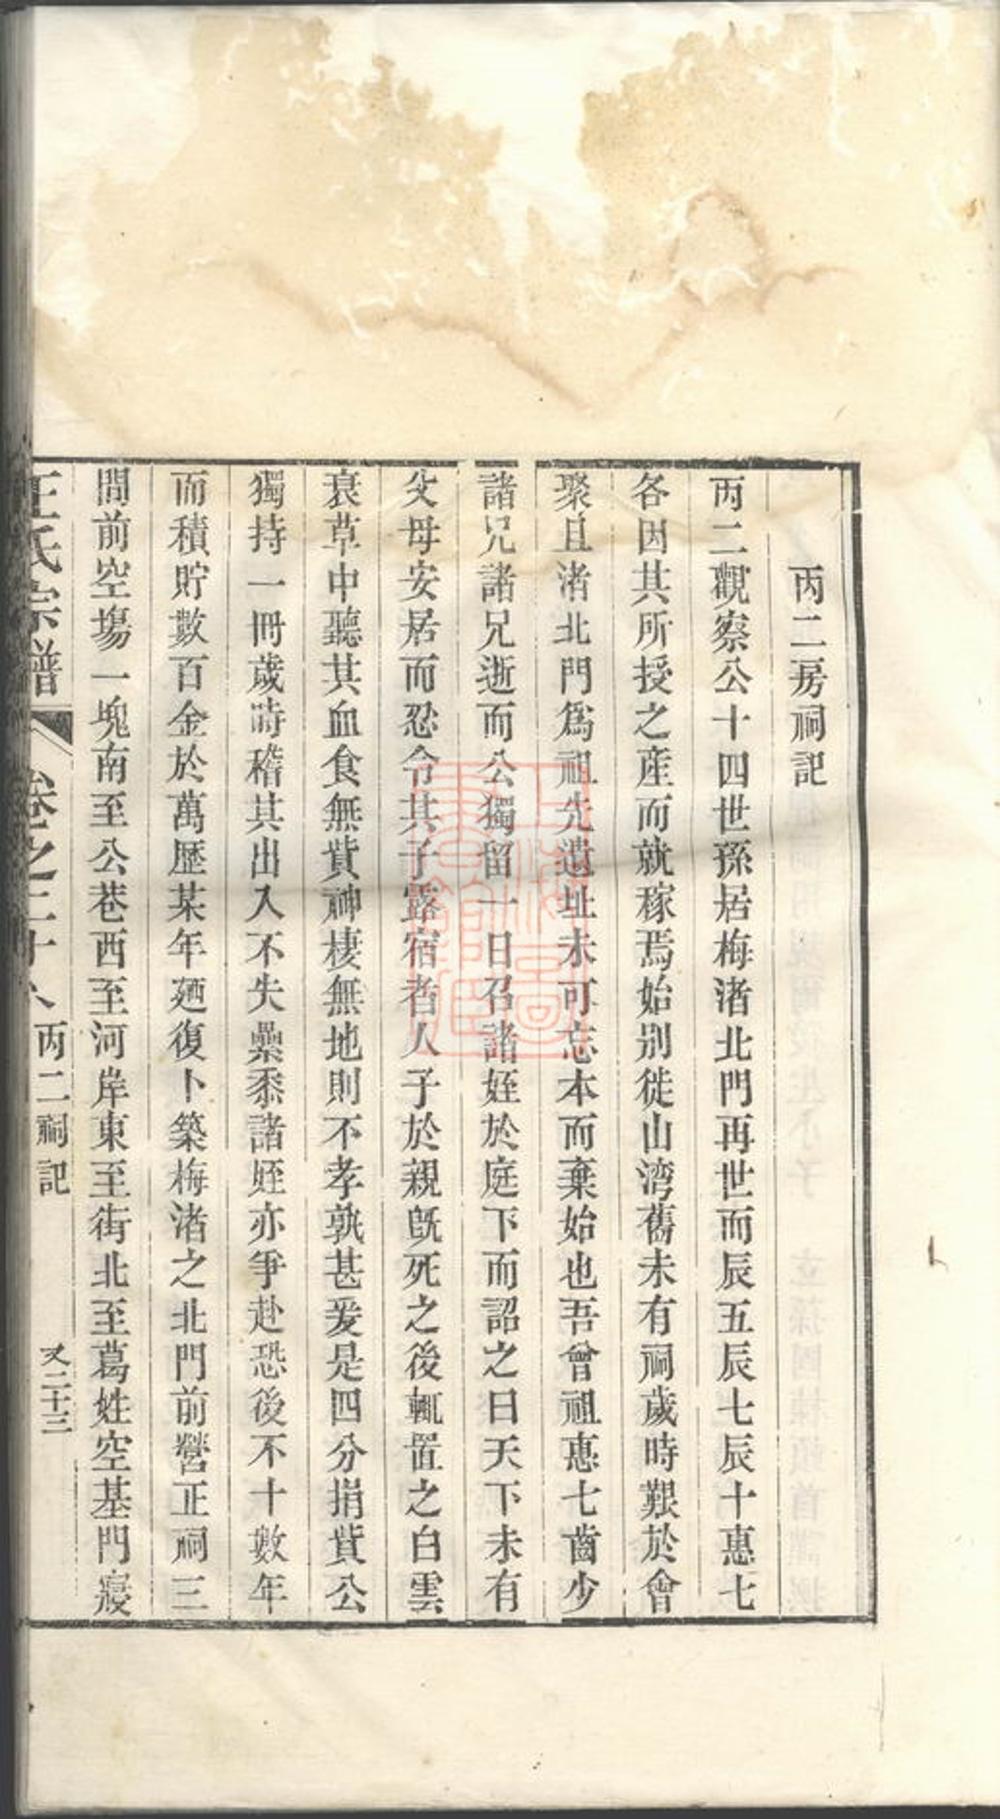 丙二房祠記
丙二觀察公十四世孫居梅渚北門再世而辰五辰七辰十惠七
各因其所授之產而就稼焉始別徙山湾舊未有祠歲時艱於會
聚且渚北門爲祖先遺址未可忘本而棄始也吾曾祖惠七齒少
諸兄諸兄逝而公獨留一日召諸姪於庭下而詔之曰天下未有
父母安居而忍令其子露宿者人子於親旣死之後輒置之白雲
衰草中聽其血食無貲神棲無地則不孝孰甚爰是四分捐貲公
獨持一冊歲時稽其出入不失纍黍諸姪亦爭赴恐後不十數年
而積貯數百金於萬歷某年廼復卜築梅渚之北門前營正祠三
間前空塲一塊南至公巷西至河岸東至街北至葛姓空基門寢
王氏宗譜 卷之三十八 丙二祠記 又二十三